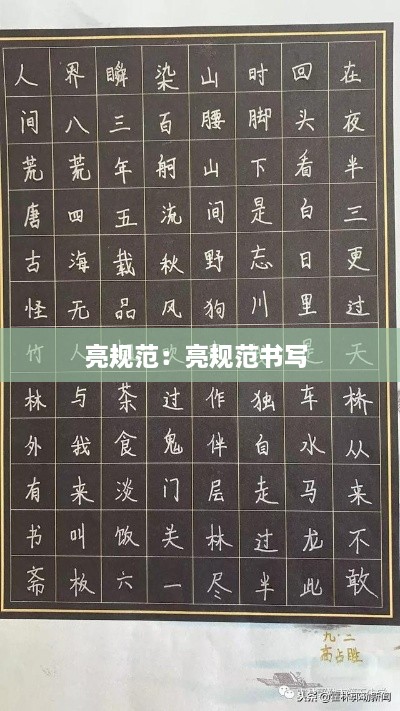 在夜半三更过天桥从来不敢
回头看白日里是车水马龙此
时脚下是忘川独自走过半
山腰山间野狗作伴层林尽
染百舸流秋风吹过鬼门关一
瞬三年五载品茶食淡饭六
界八荒四海无人与我来叫板
人间荒唐古怪竹林外有书斋
亮规范：亮规范书写
九·二
高占胜
头条